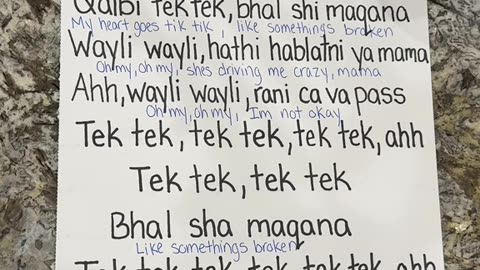 Qalbi tek tek, bhal shi maqana
My heart goes tik tik, like somethings broken
Wayli wayli, hathi hablatni ya mama
Oh my, oh my, shes driving me crazy, mama
Ahh, wayli wayli, rani ca va pass
Oh my, oh my, I'm not okay
Tek tek, tek tek, tek tek, ahh
Tek tek, tek tek
Bhal sha maqana
Like somethings broken
Tek tek, tek tek, tek tek, ahh